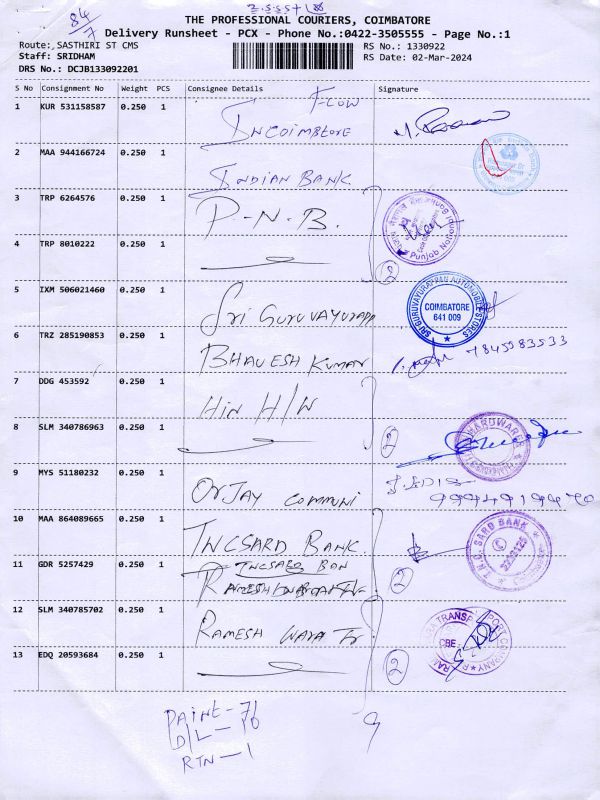 84/7
THE PROFESSIONAL COURIERS, COIMBATORE
Delivery Runsheet - PCX - Phone No.:0422-3505555 - Page No.:1
Route: SASTHIRI ST CMS
RS No.: 1330922
Staff: SRIDHAM
RS Date: 02-Mar-2024
DRS No.: DCJB133092201
S No Consignment No Weight PCS Consignee Details Signature
1 KUR 531158587 0.250 1 Flow
Coimbatore
2 MAA 944166724 0.250 1 Indian Bank
3 TRP 6264576 0.250 1 P.N.B.
Punjab National
4 TRP 8010222 0.250 1
2
5 IXM 506021460 0.250 1 Sri Guruvayurapp
SRI GURUVAYURAPPAN AUTOMOBILE STORES
COIMBATORE
641 009
6 TRZ 285190853 0.250 1 Bhavesh Kumar 7845583533
7 DDG 453592 0.250 1 Hin H/W
8 SLM 340786963 0.250 1
HARDWARES
2
9 MYS 51180232 0.250 1 Orjay Communi
10 MAA 864089665 0.250 1 TNCSARD Bank
T.N.C. SARD BANK
11 GDR 5257429 0.250 1 TNCSARD Ban
2
12 SLM 340785702 0.250 1 Ramesh
TRANSPORT COMPANY
CBE
13 EDQ 20593684 0.250 1
2
9
DL - 10
RTN - 1